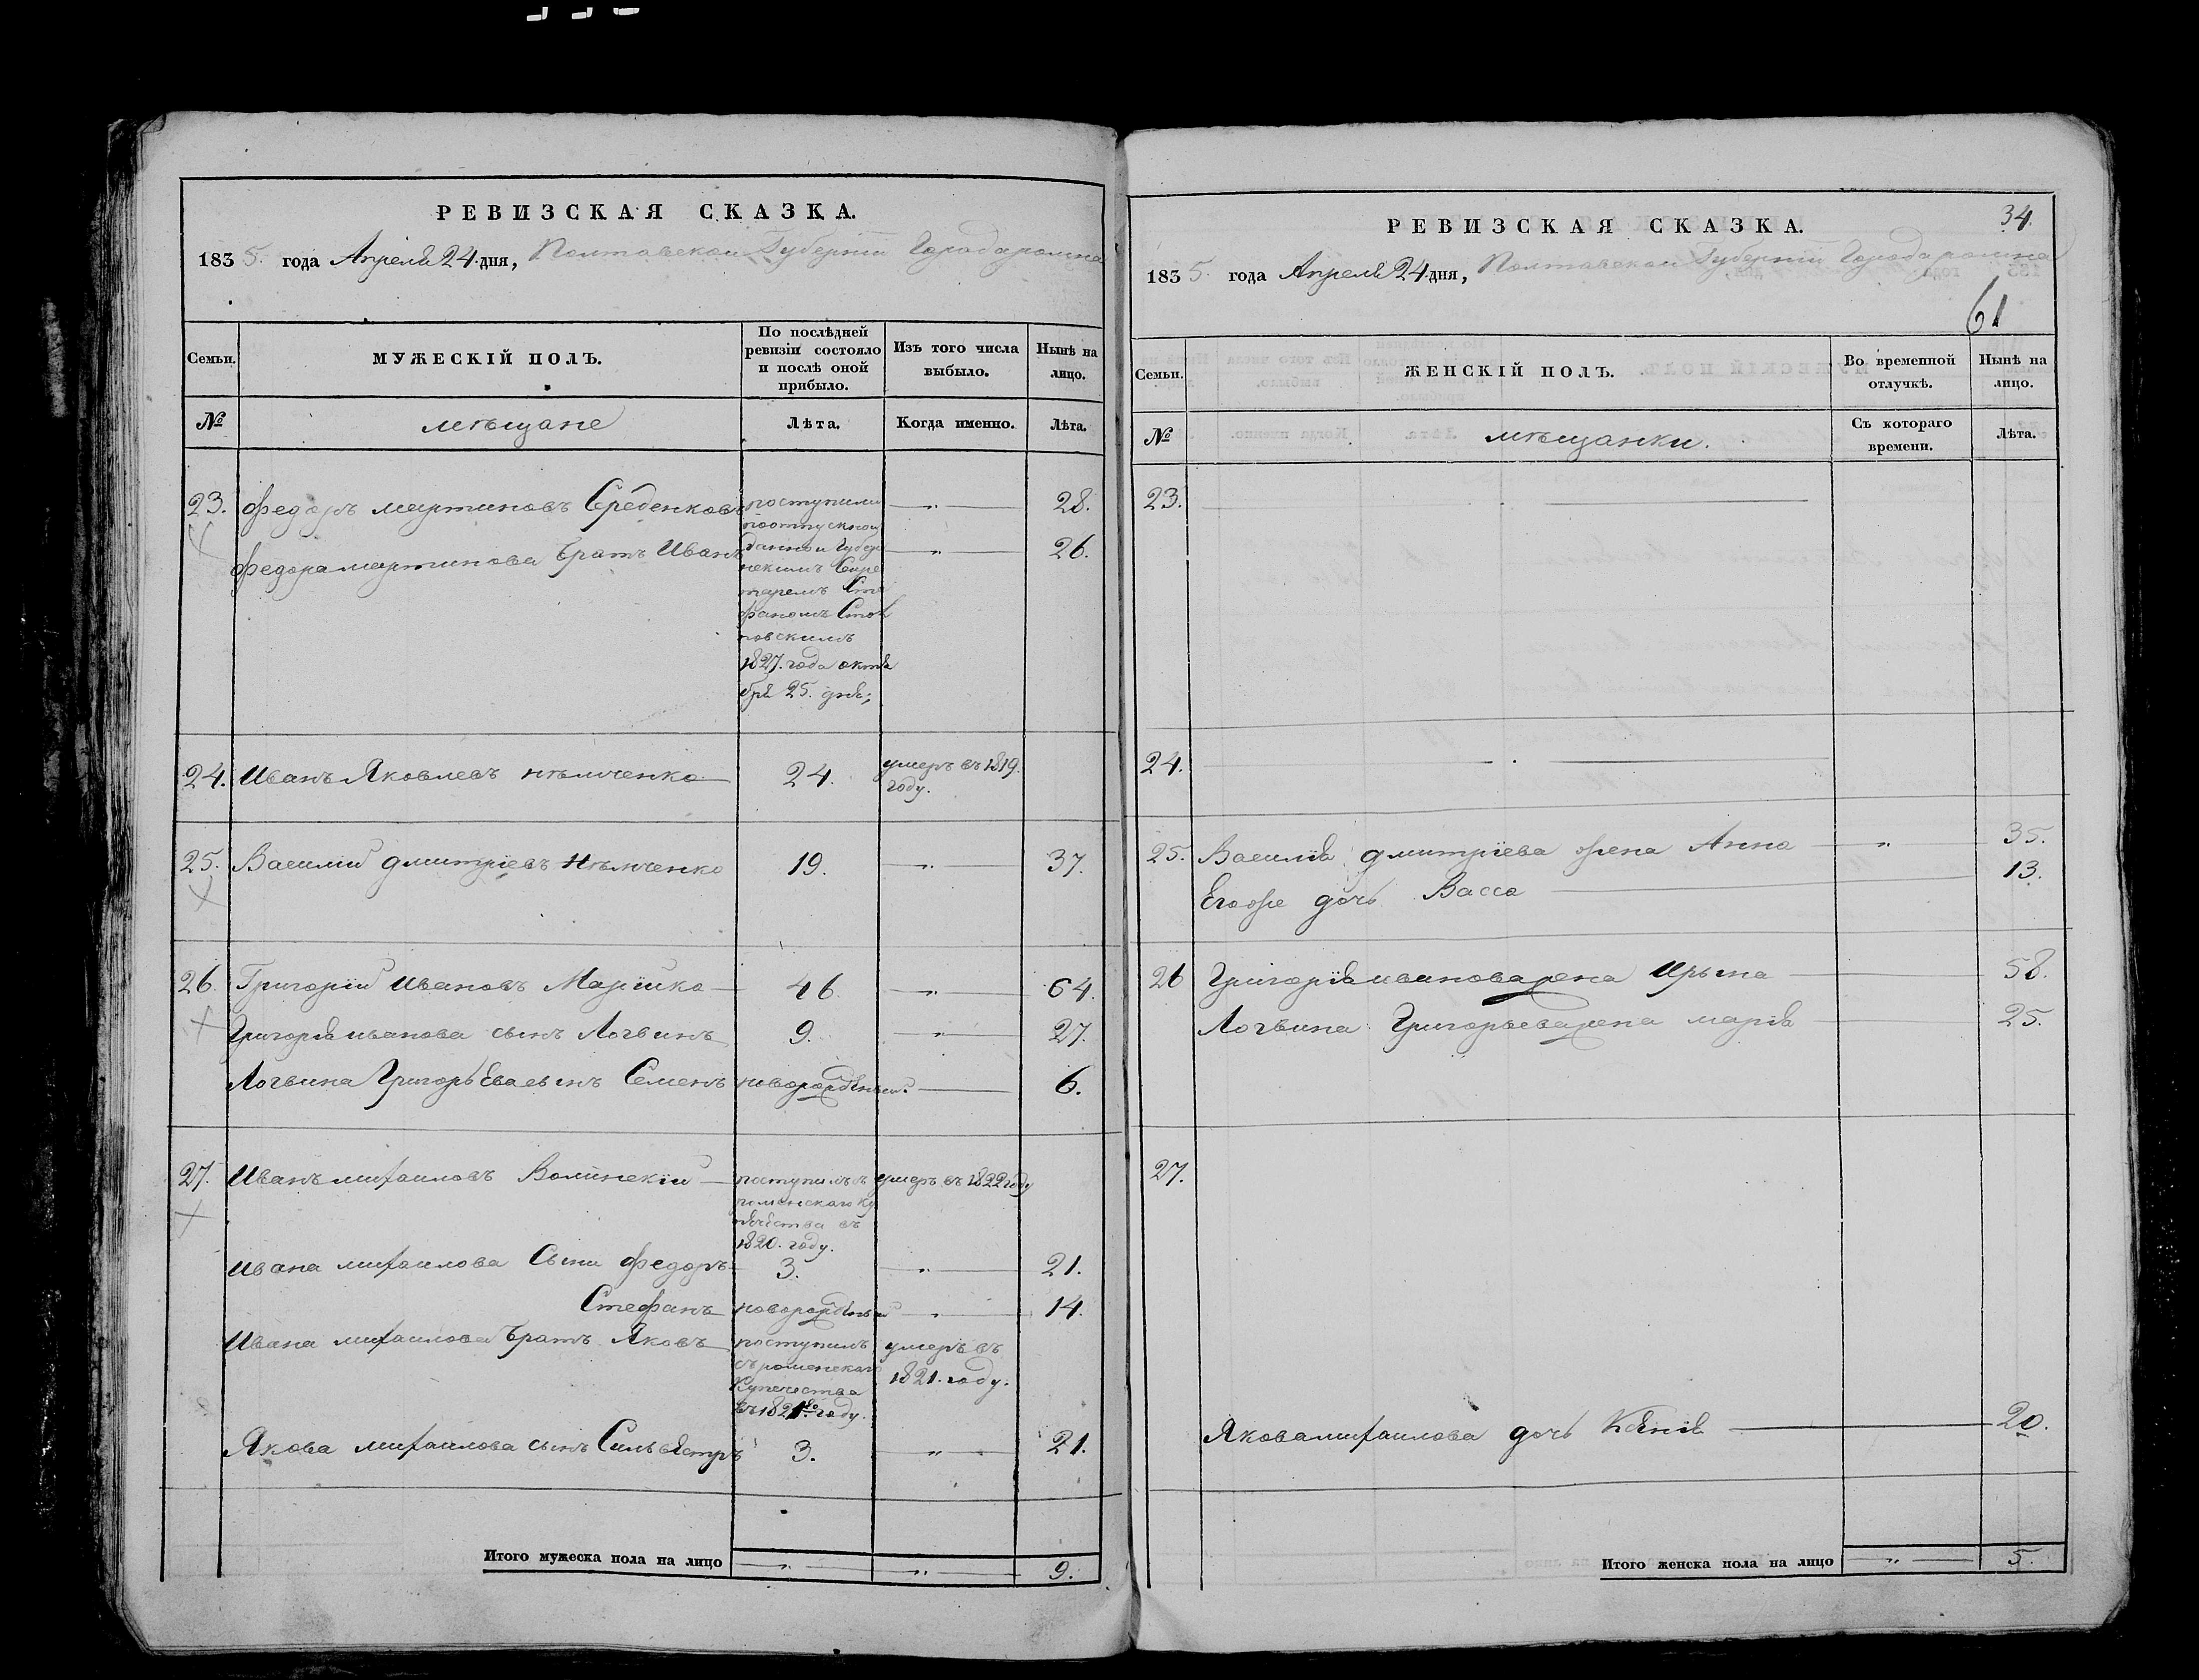 РЕВИЗСКАЯ СКАЗКА.
1835. года Апреля 24. дня, Полтавской Губернiи Города ромна
Семьи.
МУЖЕСКIЙ ПОЛЪ.
По послѣдней ревизiи состояло и послѣ оной прибыло.
Изъ того числа выбыло.
Нынѣ на лицо.
№
мѣщане
Лѣта.
Когда именно.
Лѣта.
23. Федоръ мартиновъ Середенковъ поступили —„— 28.
поотпускной
Федора мартинова братъ Иванъ данной Губер —„— 26.
нскимъ Секре
таремъ Сте
фаномъ
1827. года октя
бря 25. дня;
24. Иванъ Яковлевъ нѣмченко 24. умеръ въ 1819.
году.
25. Василiй дмитрiевъ Нѣмченко 19. —„— 37.
26. Григорiй Ивановъ Марiйко 46 —„— 64.
Григорiя иванова сынъ Логвинъ 9. —„— 27.
Логвина Григорьева сынъ Семенъ новорожденный. — 6.
27. Иванъ михаиловъ Волинскiй — поступилъ умеръ въ 1822 году
роменскаго ку
печества въ
1820. году.
Ивана михаилова Сыни Федоръ 3. —„— 21.
Стефанъ новорожденный —„— 14.
Ивана михаилова братъ Яковъ поступилъ умеръ въ
съ роменскаго 1821. году.
Купечества
въ 1821го году.
Якова михаилова сынъ Сильвестръ 3. —„— 21.
Итого мужеска пола на лицо —„— —„— 9.
34.
РЕВИЗСКАЯ СКАЗКА.
1835. года Апреля 24. дня, Полтавской Губернiи Города ромна
61
Семьи.
ЖЕНСКIЙ ПОЛЪ.
Во временной отлучкѣ.
Нынѣ на лицо.
№
мѣщанки.
Съ котораго времени.
Лѣта.
23. —
24. —
25. Василiя дмитрiева жена Анна —„— 35.
Егоже дочь Васса — 13.
26 Григорiя иванова жена Ирына — 58.
Логвина Григорьева жена марiя — 25.
27.
Якова михаилова дочь Ксенiя — 20.
Итого женска пола на лицо —„— 5.